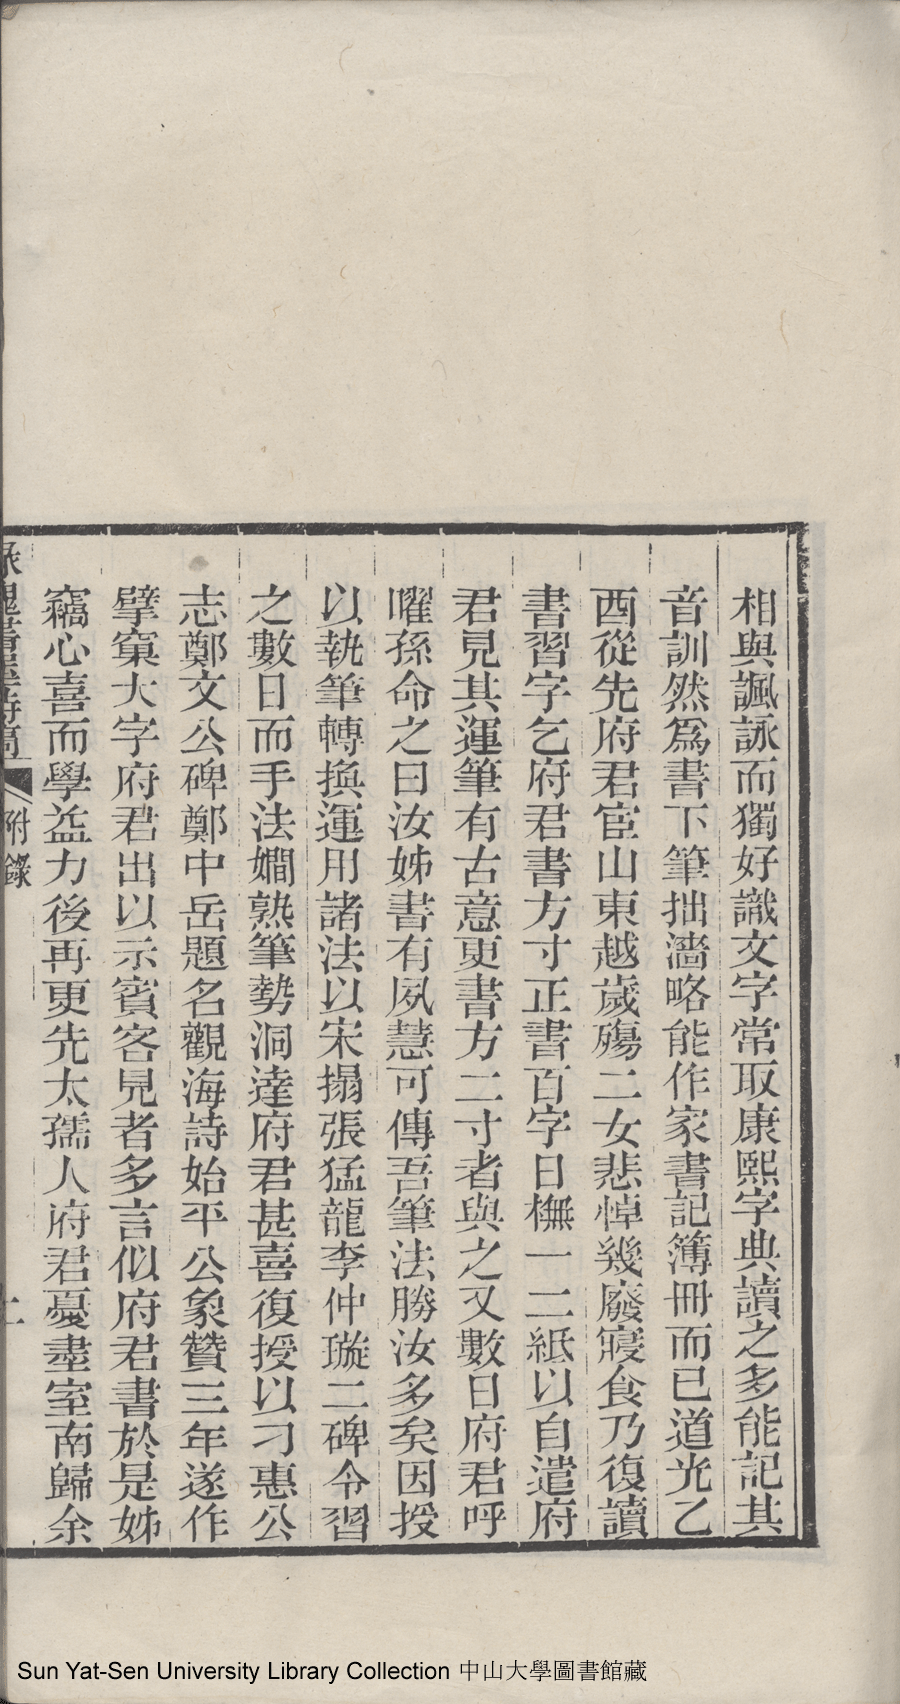 相與諷詠而獨好識文字常取康熙字典讀之多能記其
音訓然爲書下筆拙濇略能作家書記簿冊而已道光乙
酉從先府君宦山東越歲殤二女悲悼幾廢寢食乃復讀
書習字乞府君書方寸正書百字日橅一二紙以自遣府
君見其運筆有古意更書方二寸者與之又數日府君呼
曜孫命之曰汝姊書有夙慧可傳吾筆法勝汝多矣因授
以執筆轉換運用諸法以宋搨張猛龍李仲璇二碑令習
之數日而手法嫺熟筆勢洞達府君甚喜復授以刁惠公
志鄭文公碑鄭中岳題名觀海詩始平公象贊三年遂作
擘窠大字府君出以示賓客見者多言似府君書於是姊
竊心喜而學益力後再更先太孺人府君憂盡室南歸余
附錄
Sun Yat-Sen University Library Collection 中山大學圖書館藏